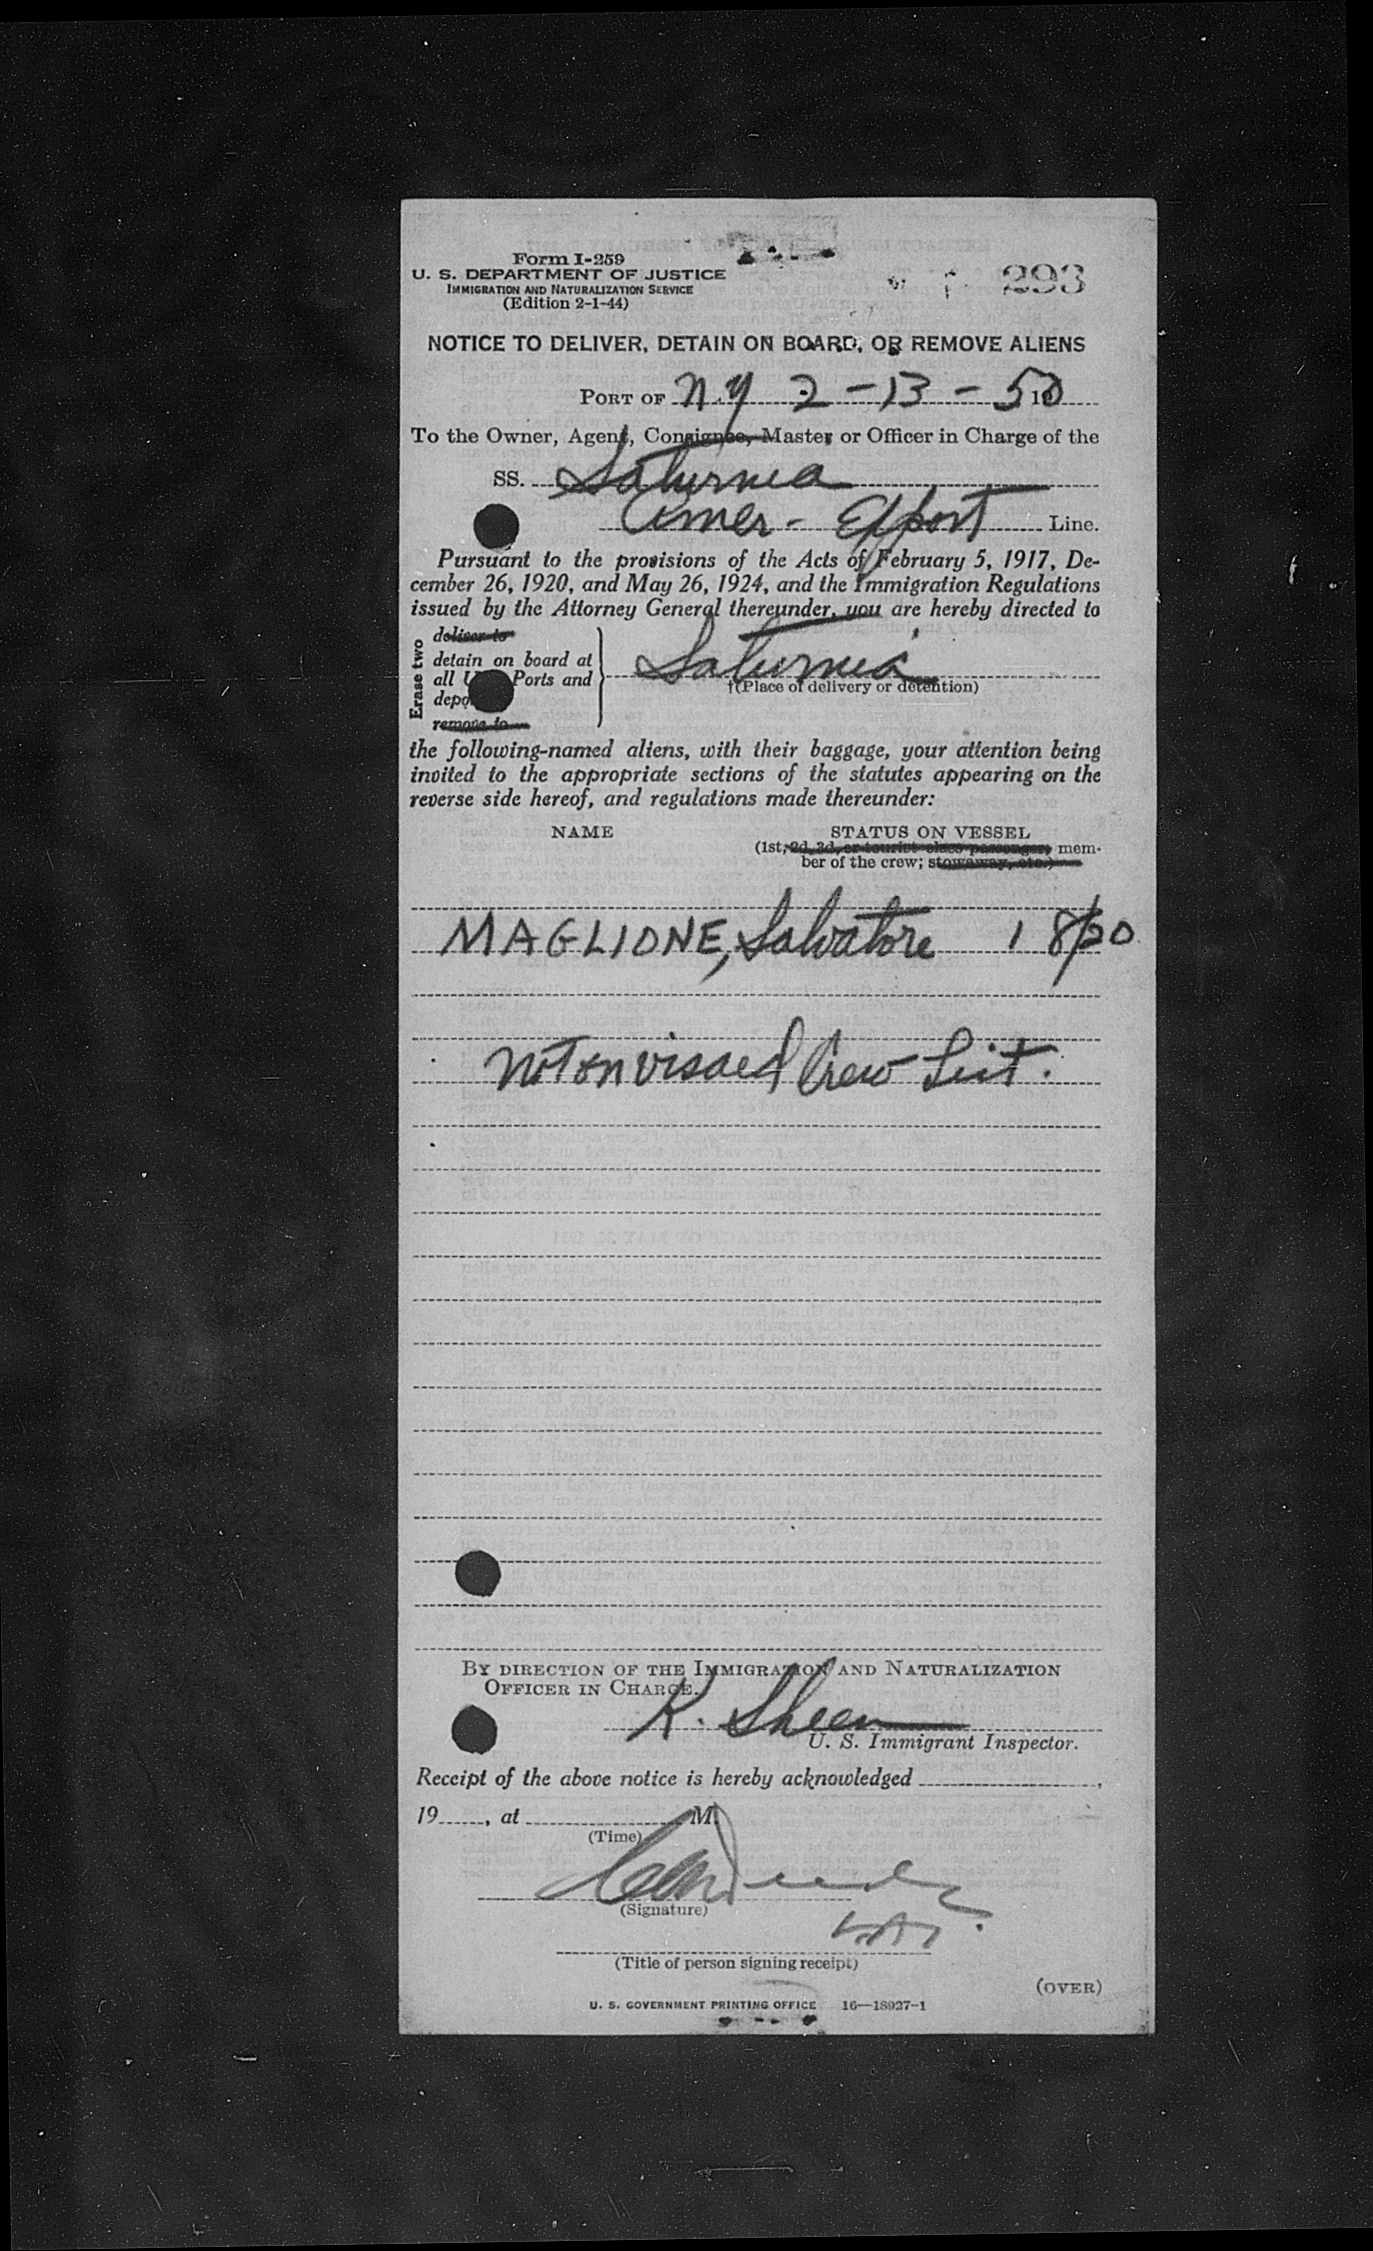 Form I-259
U. S. DEPARTMENT OF JUSTICE
IMMIGRATION AND NATURALIZATION SERVICE
(Edition 2-1-44)
293
NOTICE TO DELIVER, DETAIN ON BOARD, OR REMOVE ALIENS
PORT OF N.Y 2-13-50
To the Owner, Agent, Consignee, Master or Officer in Charge of the
SS. Saturnia
Amer- Export Line.
Pursuant to the provisions of the Acts of February 5, 1917, De-
cember 26, 1920, and May 26, 1924, and the Immigration Regulations
issued by the Attorney General thereunder, you are hereby directed to
Erase two
deliver to
detain on board at
all Ports and
remove to
Saturnia
†(Place of delivery or detention)
the following-named aliens, with their baggage, your attention being
invited to the appropriate sections of the statutes appearing on the
reverse side hereof, and regulations made thereunder:
NAME STATUS ON VESSEL
(1st, 2d, 3d, or tourist class passenger; mem-
ber of the crew; stowaway, etc.)
MAGLIONE, Salvatore 1 8/20
Not on visaed Crew List.
BY DIRECTION OF THE IMMIGRATION AND NATURALIZATION
OFFICER IN CHARGE.
K. Sheen
U. S. Immigrant Inspector.
Receipt of the above notice is hereby acknowledged ,
19 , at M.
(Time)
(Signature)
(Title of person signing receipt)
(OVER)
U. S. GOVERNMENT PRINTING OFFICE 16—18927-1